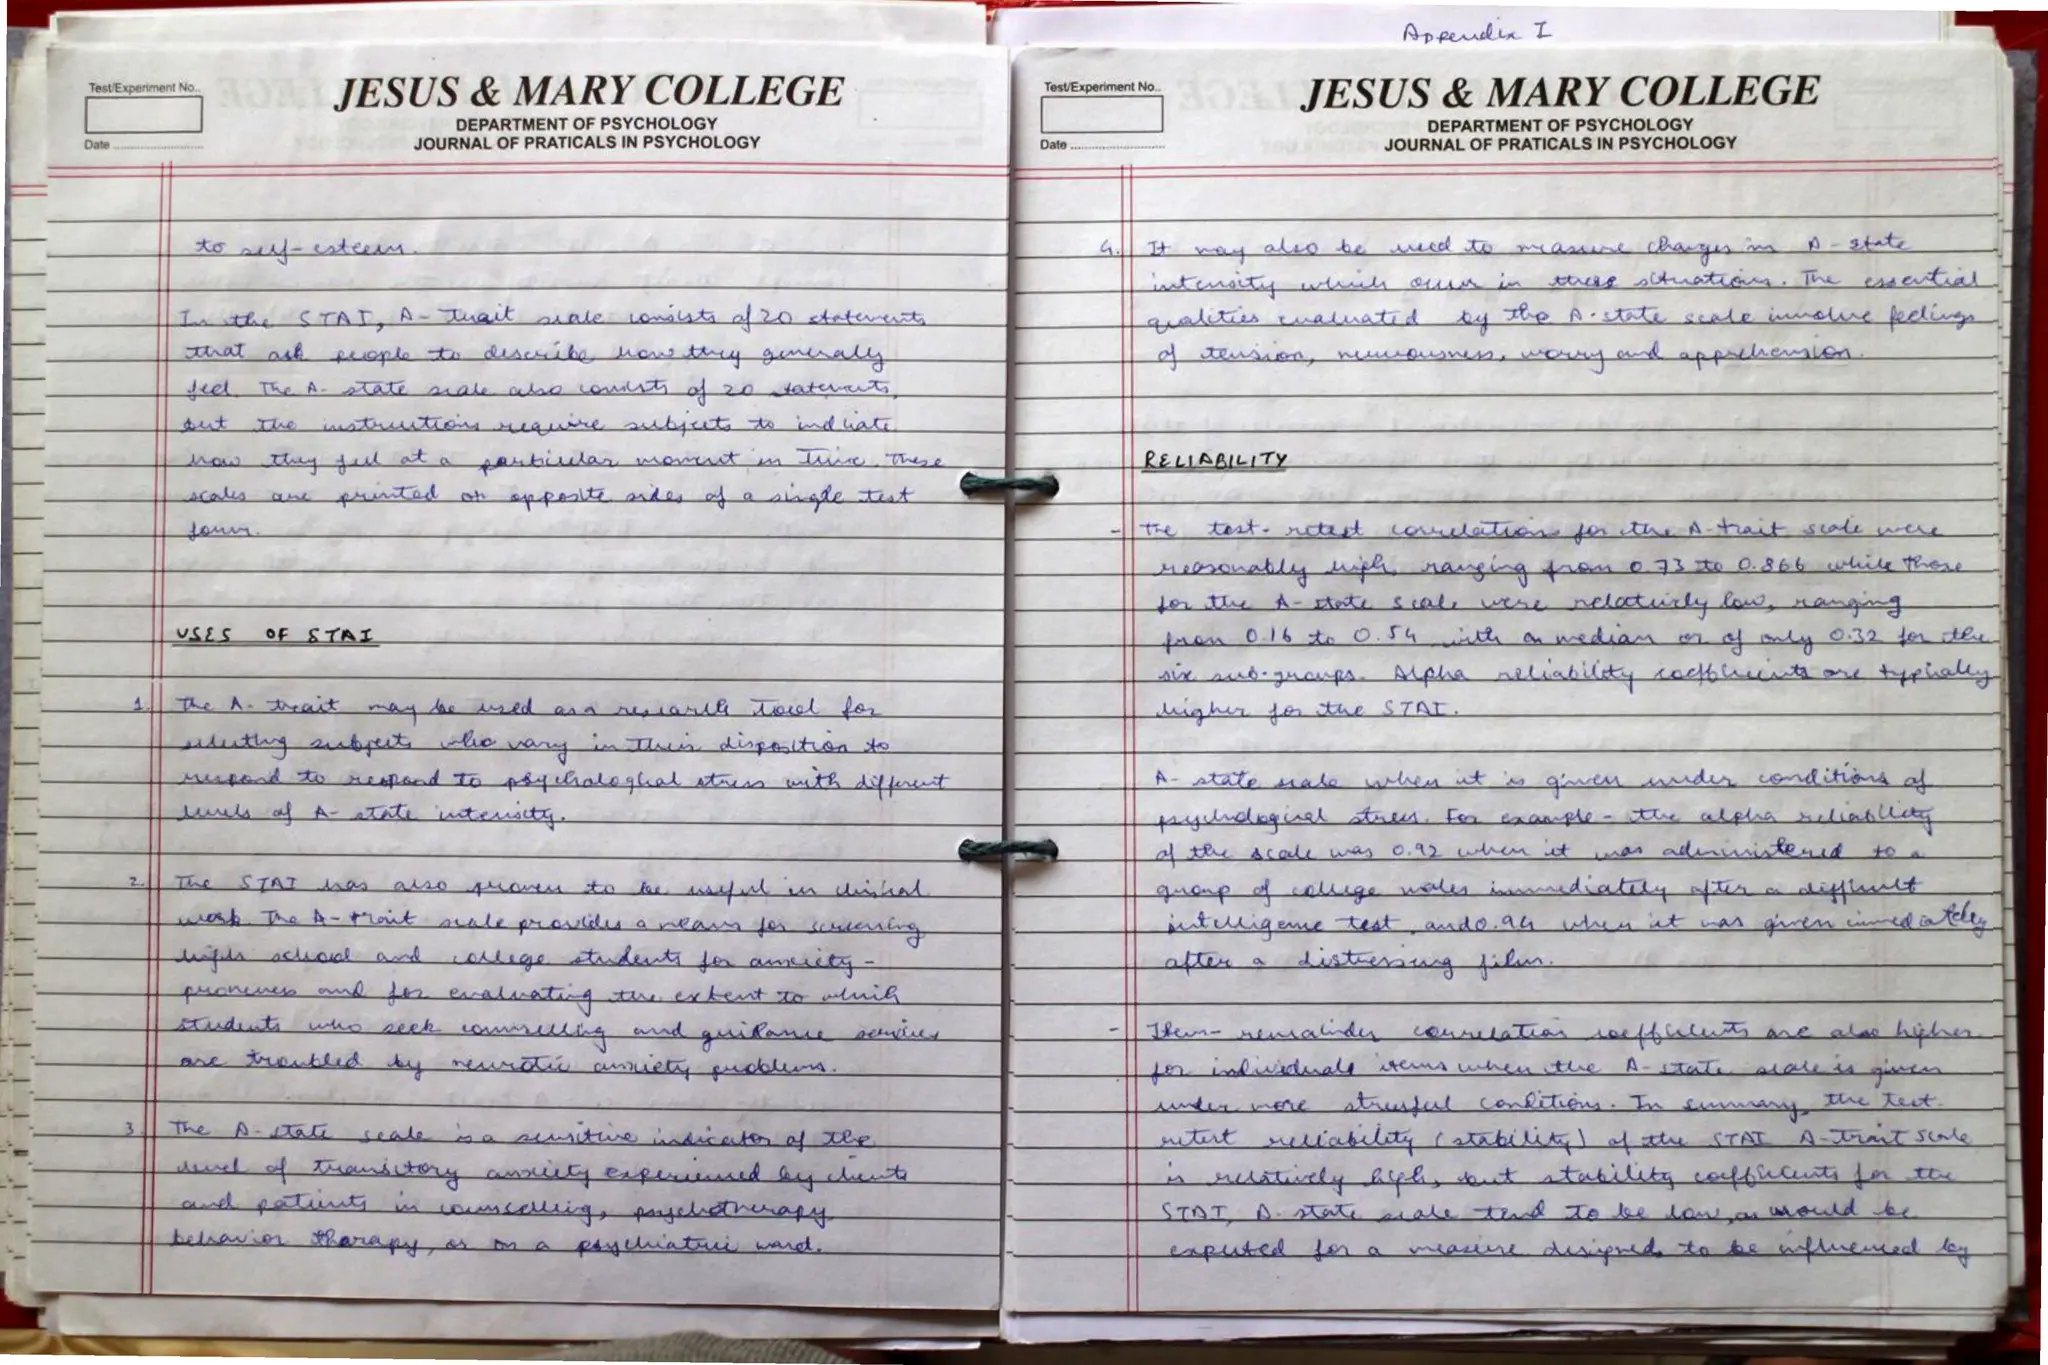 Test/Experiment No..
JESUS & MARY COLLEGE
DEPARTMENT OF PSYCHOLOGY
Date
JOURNAL OF PRATICALS IN PSYCHOLOGY
to self-esteem.
In the STAI, A-Trait scale consists of 20 statements
that ask people to describe how they generally
feel. The A-state scale also consists of 20 statements,
but the instructions require subjects to indicate
how they feel at a particular moment in time. These
scales are printed on opposite sides of a single test
form.
USES OF STAI
1. The A-trait may be used as a research tool for
selecting subjects who vary in their disposition to
respond to respond to psychological stress with different
levels of A-state intensity.
2. The STAI has also proven to be useful in clinical
work. The A-trait scale provides a means for screening
high school and college students for anxiety-
proneness and for evaluating the extent to which
students who seek counselling and guidance services
are troubled by neurotic anxiety problems.
3. The A-state scale is a sensitive indicator of the
level of transitory anxiety experienced by clients
and patients in counselling, psychotherapy
behavior therapy, or on a psychiatric ward.
Appendix I
Test/Experiment No..
JESUS & MARY COLLEGE
DEPARTMENT OF PSYCHOLOGY
Date
JOURNAL OF PRATICALS IN PSYCHOLOGY
4. It may also be used to measure changes in A-state
intensity which occur in these situations. The essential
qualities evaluated by the A-state scale involve feelings
of tension, nervousness, worry and apprehension.
RELIABILITY
- The test-retest correlations for the A-trait scale were
reasonably high, ranging from 0.73 to 0.866 while those
for the A-state scale were relatively low, ranging
from 0.16 to 0.54 with a median or of only 0.32 for the
six sub-groups. Alpha reliability coefficients are typically
higher for the STAI.
A-state scale when it is given under conditions of
psychological stress. For example - the alpha reliability
of the scale was 0.92 when it was administered to a
group of college males immediately after a difficult
intelligence test, and 0.94 when it was given immediately
after a distressing film.
- Item-remainder correlation coefficients are also higher
for individuals items when the A-state scale is given
under more stressful conditions. In summary, the test-
retest reliability (stability) of the STAI A-Trait scale
is relatively high, but stability coefficients for the
STAI, A-state scale tend to be low, as would be
expected for a measure designed to be influenced by